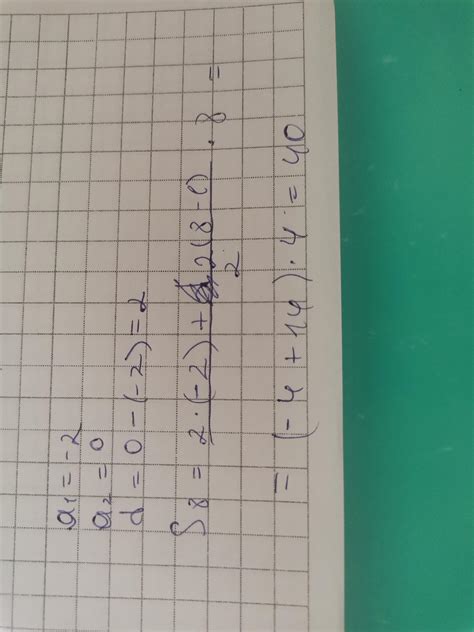 a₁ = -2
a₂ = 0
d = 0 - (-2) = 2
S₈ = (2 · (-2) + 2(8 - 1))/2 · 8 =
= (-4 + 14) · 4 = 40